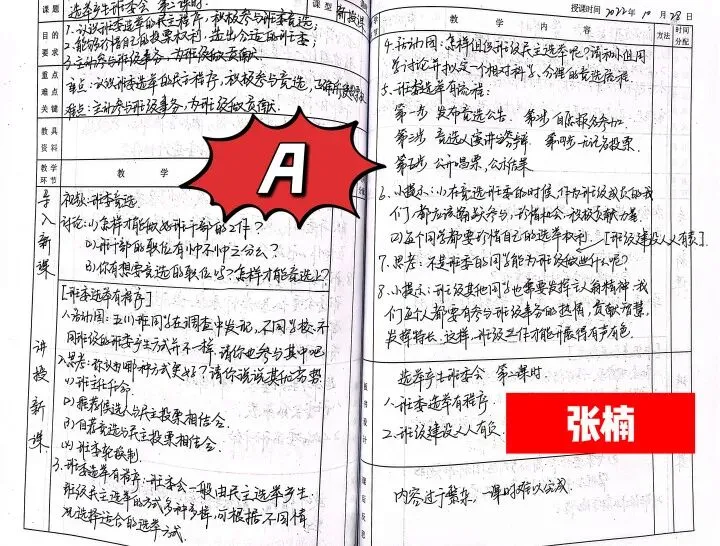 课题
选举产生班委会 第二课时.
课型
新授课
目的
要求
1.认识班委选举的民主程序,积极参与班委竞选;
2.能够珍惜自己的投票权利,选出合适的班委;
3.主动参与班级事务,为班级做贡献.
重点
难点
关键
重点:认识班委选举的民主程序,积极参与竞选,
难点:主动参与班级事务,为班级做贡献.
教具
资料
教学
环节
教 学
导入新课
视频:班委竞选.
讨论:(1)怎样才能做好班干部的工作?
(2)班干部的职位有小中不中之分么?
(3)你有想要竞选的职位吗?怎样才能竞选上?
讲授新课
[班委选举有程序]
1.活动园:五(1)班同学在调查中发现,不同学校、不
同班级的班委产生方式并不一样,请你也参与其中吧
2.思考:你认为哪种方式更好?请你说说其他劣势.
(1)班主任任命.
(2)推荐候选人与民主投票相结合.
(3)自荐竞选与民主投票相结合.
(4)班委轮换制.
3.班委选举有程序:班委会一般由民主选举产生.
班级民主选举的方式多种多样,可根据不同情
况选择适合的选举方式.
A
授课时间 2022年 10月 28日
教 学 内 容
方法
时间
分配
4.活动园:怎样组织班级民主选举呢?请和小组同
学讨论并拟定一个相对科学、合理的竞选流程.
5.班委选举有流程:
第一步 发布竞选公告. 第二步 自愿报名参加.
第三步 竞选人演讲与答辩. 第四步 无记名投票.
第五步 公布唱票,公示结果.
6.小提示:(1)在竞选班委的时候,作为班级成员的我
们,都应该踊跃参与,珍惜机会,积极贡献力量.
(2)每个同学都要珍惜自己的选举权利. [班级建设人人有责].
7.思考:不是班委的同学能为班级做些什么呢?
8.小提示:班级其他同学也需要发挥主人翁精神,我
们每个人都要有参与班级事务的热情,贡献智慧,
发挥特长,这样,班级工作才能开展得有声有色.
板书设计
选举产生班委会 第二课时.
1.班委选举有程序.
2.班级建设人人有责.
张楠
课后反思
内容过于繁杂,一课时难以完成.